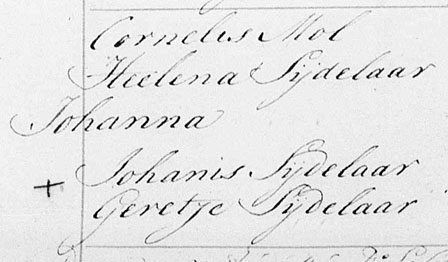 Cornelis Mol
Heelena Sijdelaar
Johanna
Johanis Sijdelaar
+ Geretje Sijdelaar